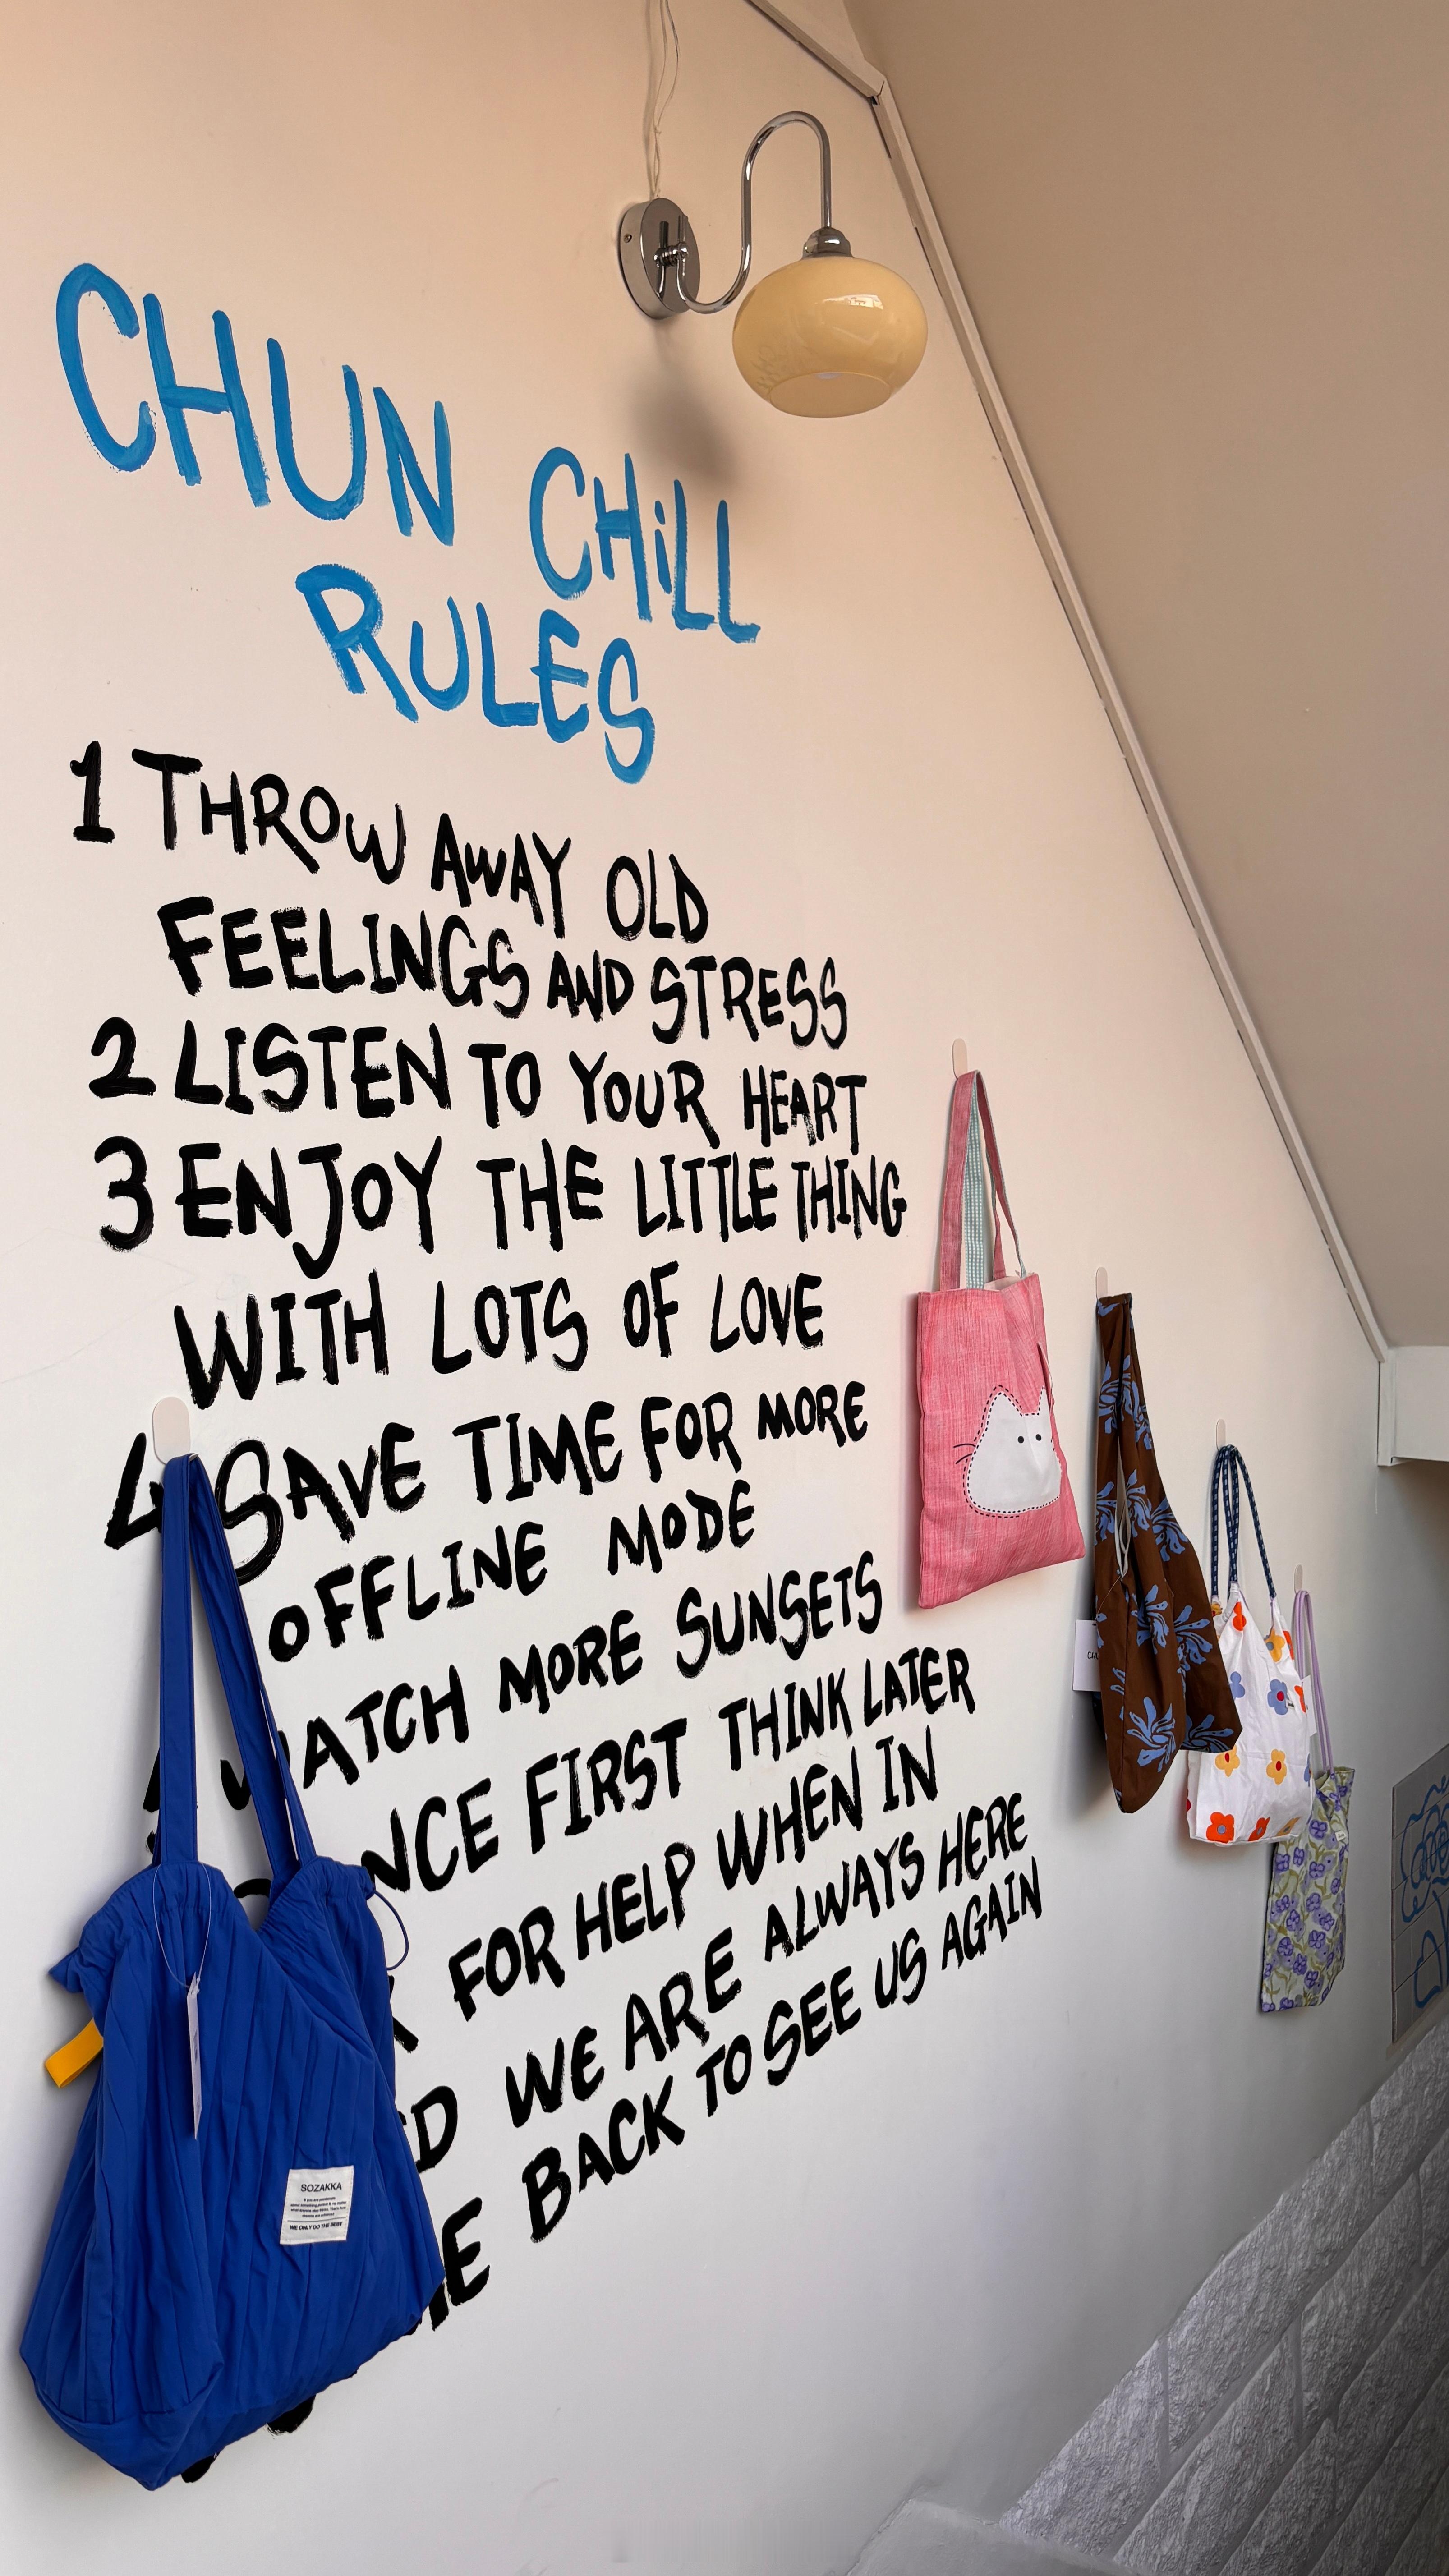 CHUN CHiLL
RULES
1 THROW AWAY OLD
FEELINGS AND STRESS
2 LISTEN TO YOUR HEART
3 ENJOY THE LITTLE THING
WITH LOTS OF LOVE
4 SAVE TIME FOR MORE
OFFLINE MODE
WATCH MORE SUNSETS
FIRST THINK LATER
FOR HELP WHEN IN
WE ARE ALWAYS HERE
BACK TO SEE US AGAIN
SOZAKKA
WE ONLY DO THE BEST